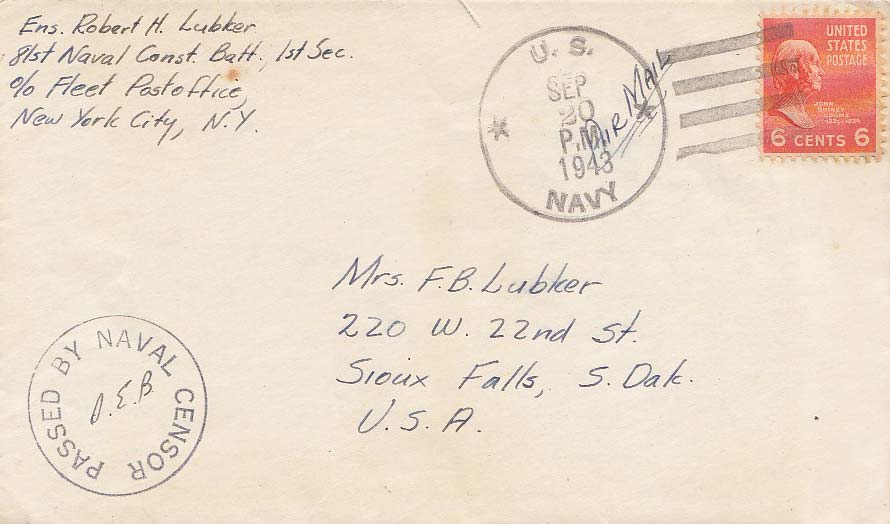 Ens. Robert H. Lubker
81st Naval Const. Batt., 1st Sec.
c/o Fleet Postoffice,
New York City, N.Y.
U. S.
SEP
20
P.M.
1943
NAVY
AIR MAIL
UNITED
STATES
POSTAGE
JOHN
QUINCY
ADAMS
1825-1829
6 CENTS 6
Mrs. F.B. Lubker
220 W. 22nd St.
Sioux Falls, S. Dak.
U. S. A.
PASSED BY NAVAL CENSOR
O.E.B